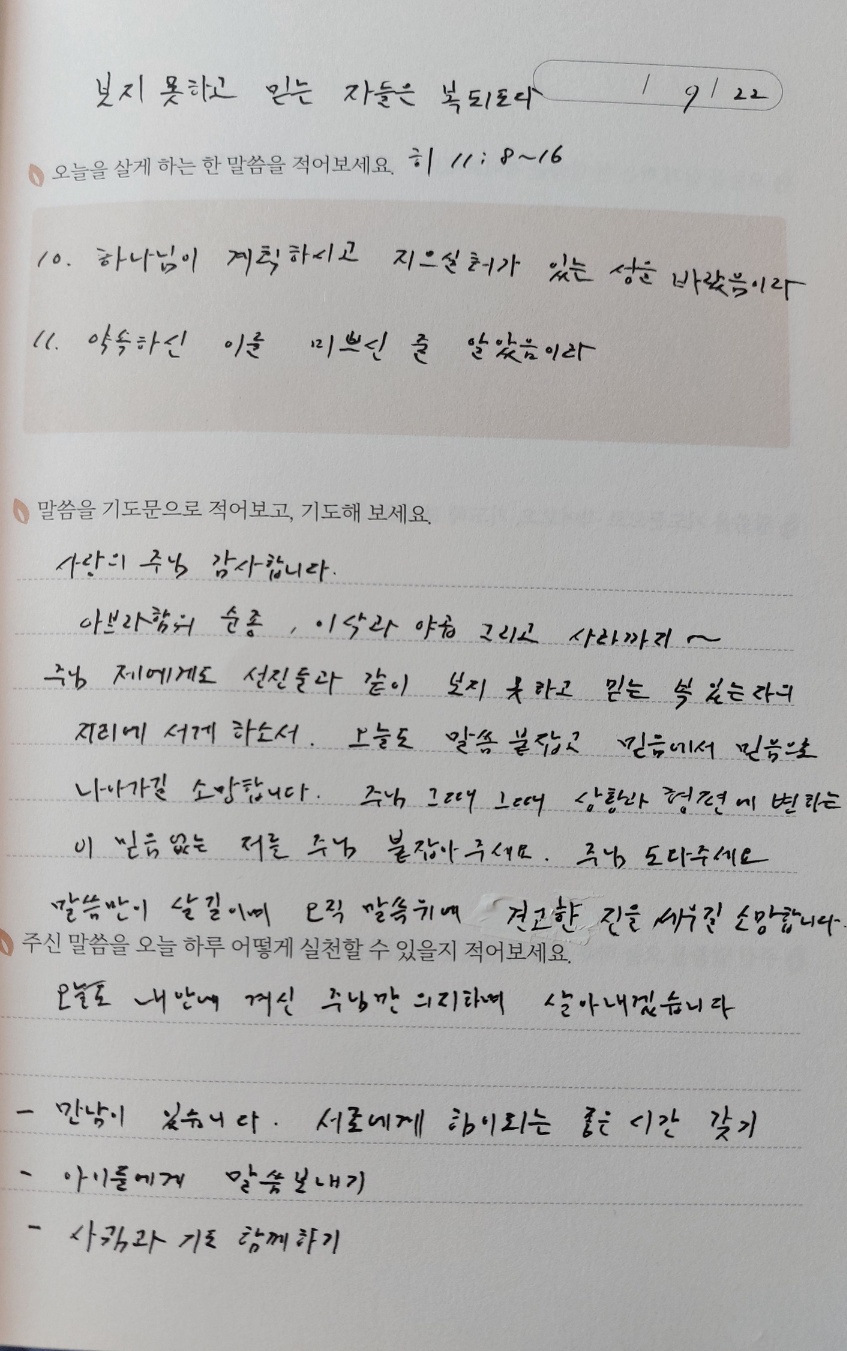 보지 못하고 믿는 자들은 복되도다
/ 9 / 22
오늘을 살게 하는 한 말씀을 적어보세요. 히 11 : 8~16
10. 하나님이 계획하시고 지으실 터가 있는 성을 바랐음이라
11. 약속하신 이를 미쁘신 줄 알았음이라
말씀을 기도문으로 적어보고, 기도해 보세요.
사랑의 주님 감사합니다.
아브라함의 순종, 이삭과 야곱 그리고 사라까지 ~
주님 제에게도 선진들과 같이 보지 못하고 믿는 복 있는 자의
자리에 서게 하소서. 오늘도 말씀 붙잡고 믿음에서 믿음으로
나아가길 소망합니다. 주님 그때 그때 상황과 형편에 변하는
이 믿음 없는 저를 주님 붙잡아 주세요. 주님 도와주세요
말씀만이 살 길이며 오직 말씀위에 견고한 진을 세우길 소망합니다.
주신 말씀을 오늘 하루 어떻게 실천할 수 있을지 적어보세요.
오늘도 내 안에 계신 주님만 의지하며 살아내겠습니다
- 만남이 있습니다. 서로에게 힘이되는 좋은 시간 갖기
- 아이들에게 말씀 보내기
- 기도 함께하기